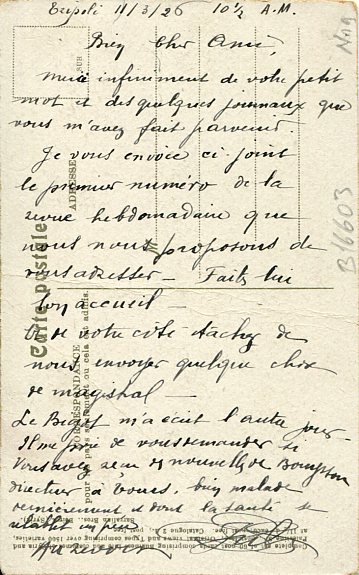 Tripoli 11/3/26 10½ A.M.
Bien Cher Ami,
Merci infiniment de votre petit
mot et des quelques journaux que
vous m'avez fait parvenir.
Je vous envoie ci joint
le premier numéro de la
revue hebdomadaire que
nous nous proposons de
vous adresser — Faites lui
bon accueil —
Et de votre côté tachez de
nous envoyer quelque chose
de magistral —
Le m'a écrit l'autre jour
Il me prie de vous demander si
vous avez reçu des nouvelles de
directeur à Tours, bien malade
dernièrement et dont la santé se
rétablit un peu
Carte postale
CORRESPONDANCE
ADRESSE
SUR
B/6603